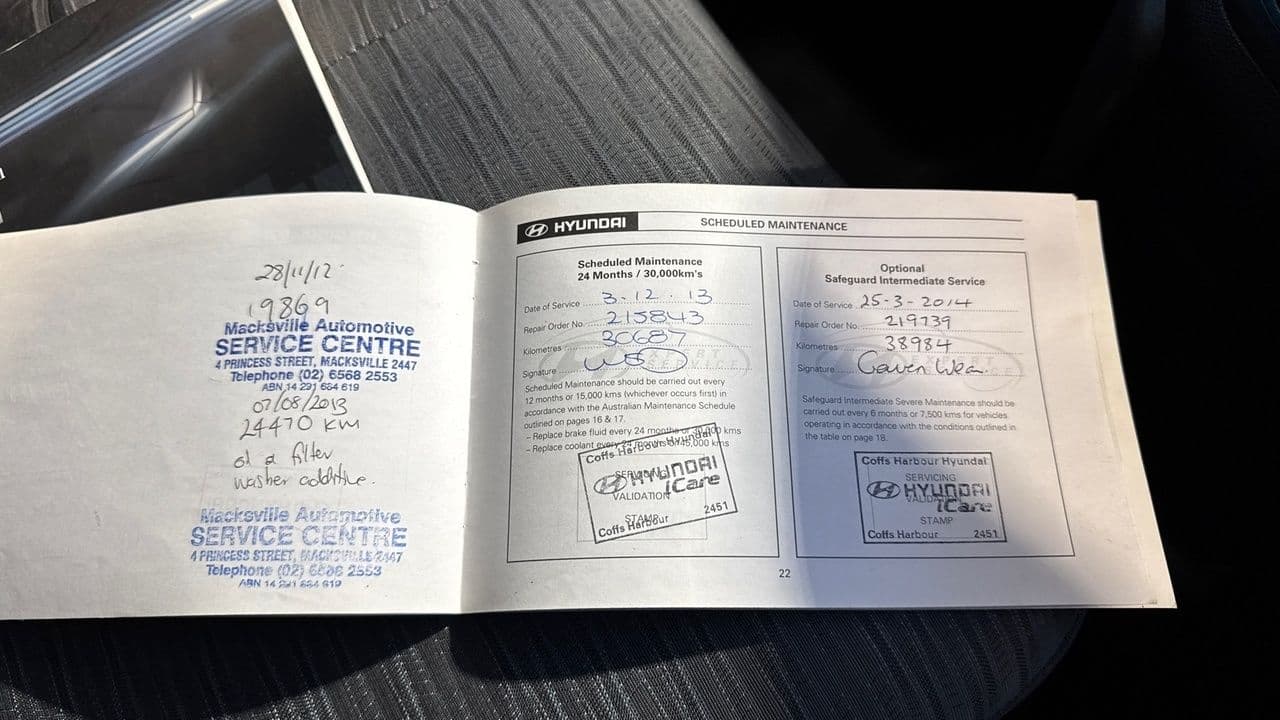 28/11/12
19869
Macksville Automotive
SERVICE CENTRE
4 PRINCESS STREET, MACKSVILLE 2447
Telephone (02) 6568 2553
ABN 14 291 684 619
07/08/2013
24470 KM
oil a filter
washer additive.
Macksville Automotive
SERVICE CENTRE
4 PRINCESS STREET, MACKSVILLE 2447
Telephone (02) 6568 2553
ABN 14 291 684 619
HYUNDAI
SCHEDULED MAINTENANCE
Scheduled Maintenance
24 Months / 30,000km's
Date of Service 3-12-13
Repair Order No. 215843
Kilometres 30687
Signature
Scheduled Maintenance should be carried out every
12 months or 15,000 kms (whichever occurs first) in
accordance with the Australian Maintenance Schedule
outlined on pages 16 & 17.
– Replace brake fluid every 24 months or 30,000 kms
– Replace coolant every 24 months or 45,000 kms
Coffs Harbour Hyundai
SERVICING
HYUNDAI
iCare
VALIDATION
STAMP
Coffs Harbour 2451
Optional
Safeguard Intermediate Service
Date of Service 25-3-2014
Repair Order No. 219739
Kilometres 38984
Signature Gaven
Safeguard Intermediate Severe Maintenance should be
carried out every 6 months or 7,500 kms for vehicles
operating in accordance with the conditions outlined in
the table on page 18.
Coffs Harbour Hyundai
SERVICING
HYUNDAI
VALIDATION
iCare
STAMP
Coffs Harbour 2451
22